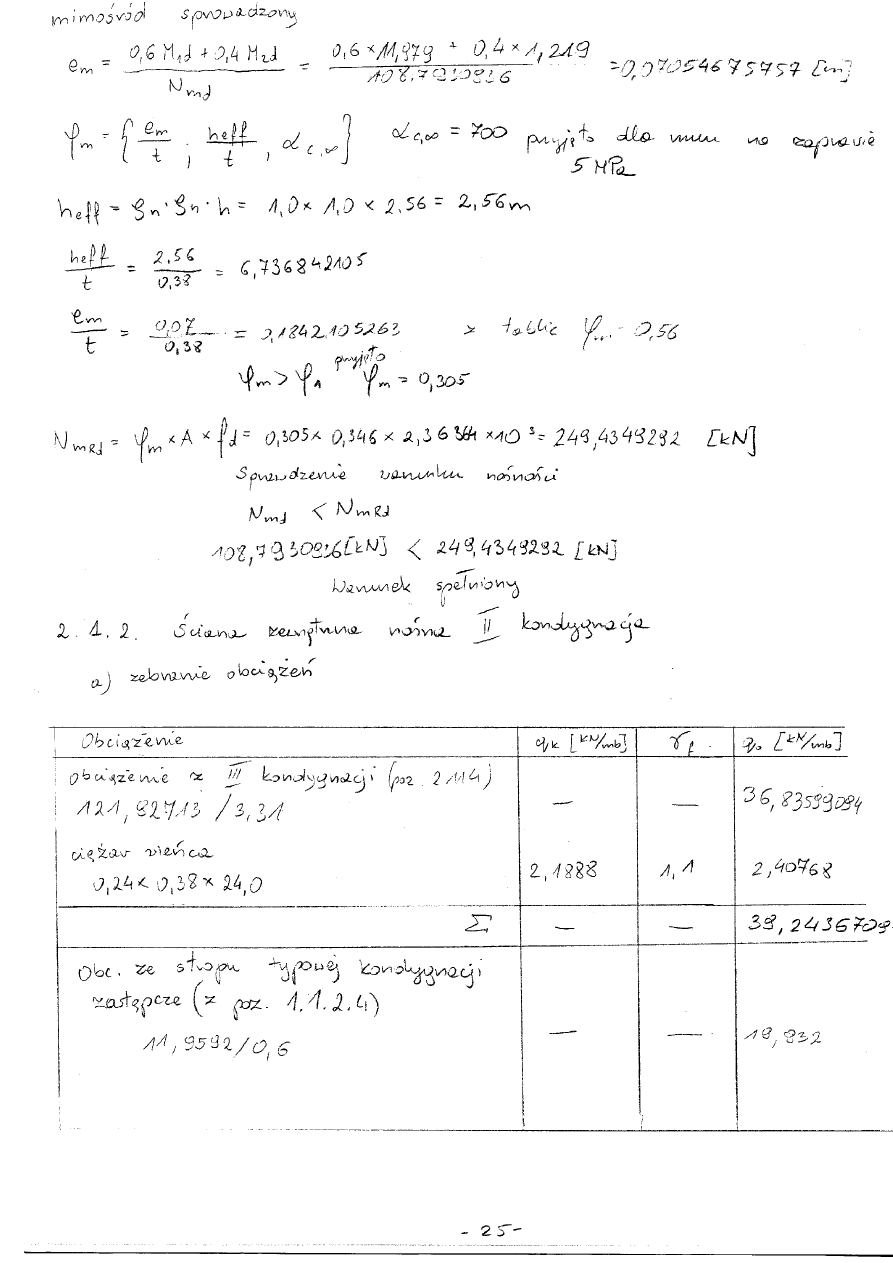 mimośród sprowadzony
em = (0,6 M1d + 0,4 M2d) / Nmd = (0,6 × 11,979 + 0,4 × 1,219) / 108,7930926 = 0,07054675757 [m]
φm = { em/t ; heff/t , αc,∞ } αc,∞ = 700 przyjęto dla muru na zaprawie
5 MPa
heff = ρh · ρn · h = 1,0 × 1,0 × 2,56 = 2,56 m
heff/t = 2,56/0,38 = 6,736842105
em/t = 0,07/0,38 = 0,1842105263 z tablic φm = 0,56
φm > φA przyjęto φm = 0,305
NmRd = φm × A × fd = 0,305 × 0,346 × 2,36364 × 10³ = 249,4349292 [kN]
Sprawdzenie warunku nośności
Nmd < NmRd
108,7930926 [kN] < 249,4349292 [kN]
Warunek spełniony
2.1.2. Ściana zewnętrzna nośna II kondygnacja
a) zebranie obciążeń
Obciążenie qk [kN/mb] γf. qo [kN/mb]
Obciążenie z III kondygnacji (poz. 2.1.1.4)
121,92713 / 3,31 — — 36,83599094
ciężar wieńca
0,24 × 0,38 × 24,0 2,1888 1,1 2,40768
Σ — — 39,2436709
Obc. ze stropu typowej kondygnacji
zastępcze (z poz. 1.1.2.4)
11,9592/0,6 — — 19,932
- 25 -